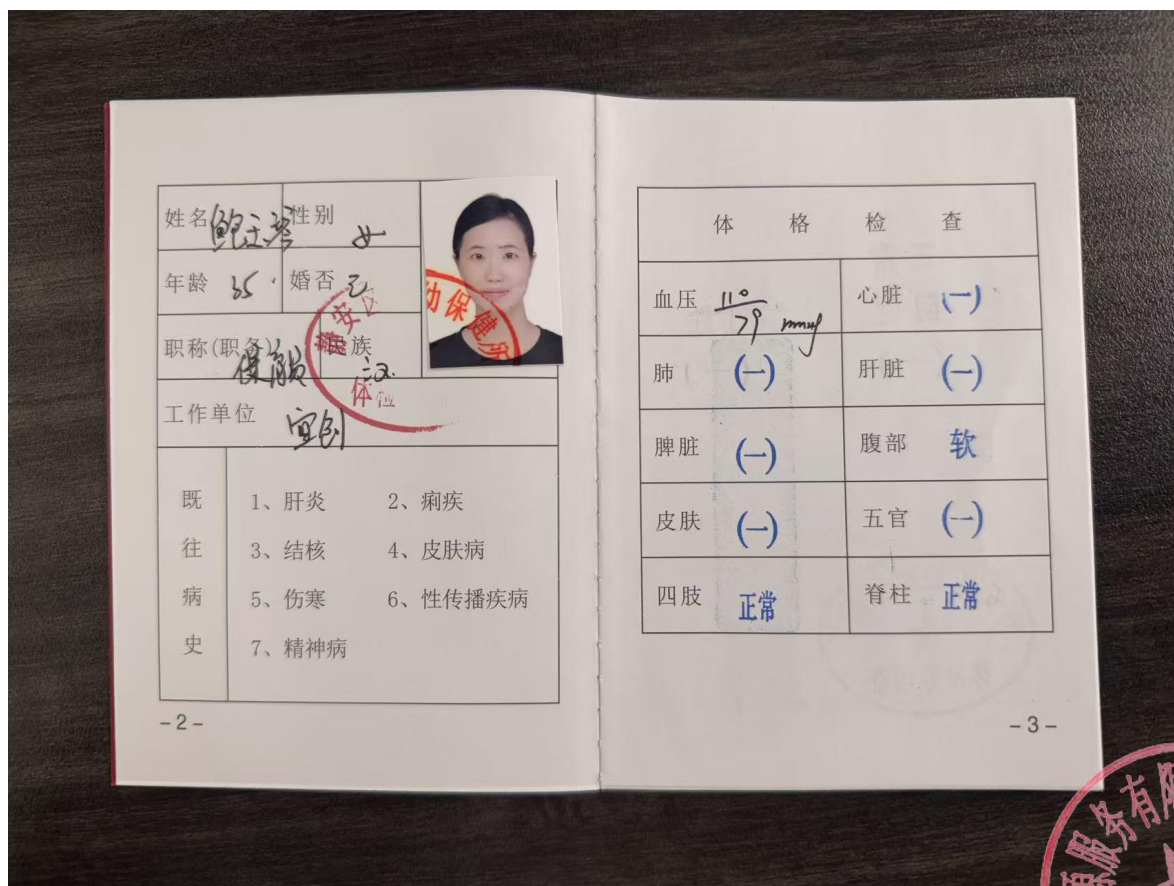 姓名 性别 女
年龄 35 婚否 已
职称(职务) 保育员 民族 汉
工作单位
既往病史
1、肝炎 2、痢疾
3、结核 4、皮肤病
5、伤寒 6、性传播疾病
7、精神病
-2-
幼保健所
静安区
体检
体格检查
血压 110/79 mmHg 心脏 (一)
肺 (一) 肝脏 (一)
脾脏 (一) 腹部 软
皮肤 (一) 五官 (一)
四肢 正常 脊柱 正常
-3-
服务有限